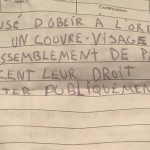 USÉ D'OBEÍR À L'ORD
UN COUVRE-VISAGE
SSEMBLEMENT DE PA
CENT LEUR DROIT
TER PUBLIQUEMEN